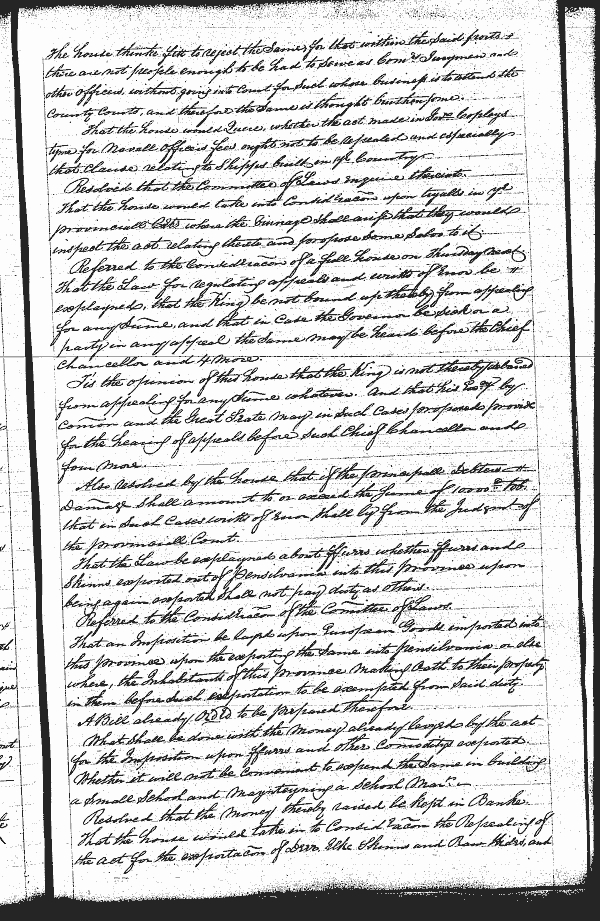 The house thinks fitt to reject the same, for that within the said ports
there are not people enough to be had to serve as Com.rs Jurymen and
other officers, without going into Court for such whose business is to attend the
County Courts, and therefore the same is thought burthensome.
That the house would Quere, whether the act made in Gov.r Copleys
tyme for Navall officers fees ought not to be repealed and especially
that Clause relating to Shipps built in ye County
Resolved that the Committee of Laws enquire thereinto.
That the house would take into Considêracon upon tryalls in ye
provinciall Cts where the Viznage shall arise that they would
inspect the act relating thereto and propose some Salvo to it.
Referred to the Consideracon of a full house on Thursday next
That the Law for regulating appeals and writts of Error be
explayned, that the King be not bound up thereby from appealing
for any Summe, and that in Case the Governor be sick or a
party in any appeal the same may be heard before the Chief
Chancellor and 4 more.
Tis the opinion of this house that the King is not thereby debarred
from appealing for any Summe whatever. And that his Exc.y by
Comon and the Great Seale may in such Cases proposed provide
for the hearing of appeals before such Chief Chancellor and
four more.
Also resolved by the house that if the principall Debt or
Damage shall amount to or exceed the Summe of 10000 Tob.
that in such Cases writts of Error shall ly from the Judgmt of
the provinciall Court.
That the Law be explayned about ffurrs whether ffurrs and
Skinns exported out of Pensilvania into this Province upon
being again exported shall not pay duty as others.
Referred to the Consideracon of the Comittee of Laws.
That an Imposition be layd upon European Goods imported into
this province upon the exporting the same into Pensilvania or else
where, the Inhabitants of this province making Oath to their property
in them before such exportation to be exempted from said duty.
A Bill already Ord'd to be prepared therefore.
What shall be done with the Money already levyed by the act
for the Imposition upon ffurrs and other Comoditys exported.
Whether it will not be Convenient to expend the same in building
a Small School and Maynteyning a School Mar.
Resolved that the money thereby raised be kept in Banke.
That the house would take in to Consideracon the Repealing of
the act for the exportacon of Deer, Elke Skinns and Raw Hides, and